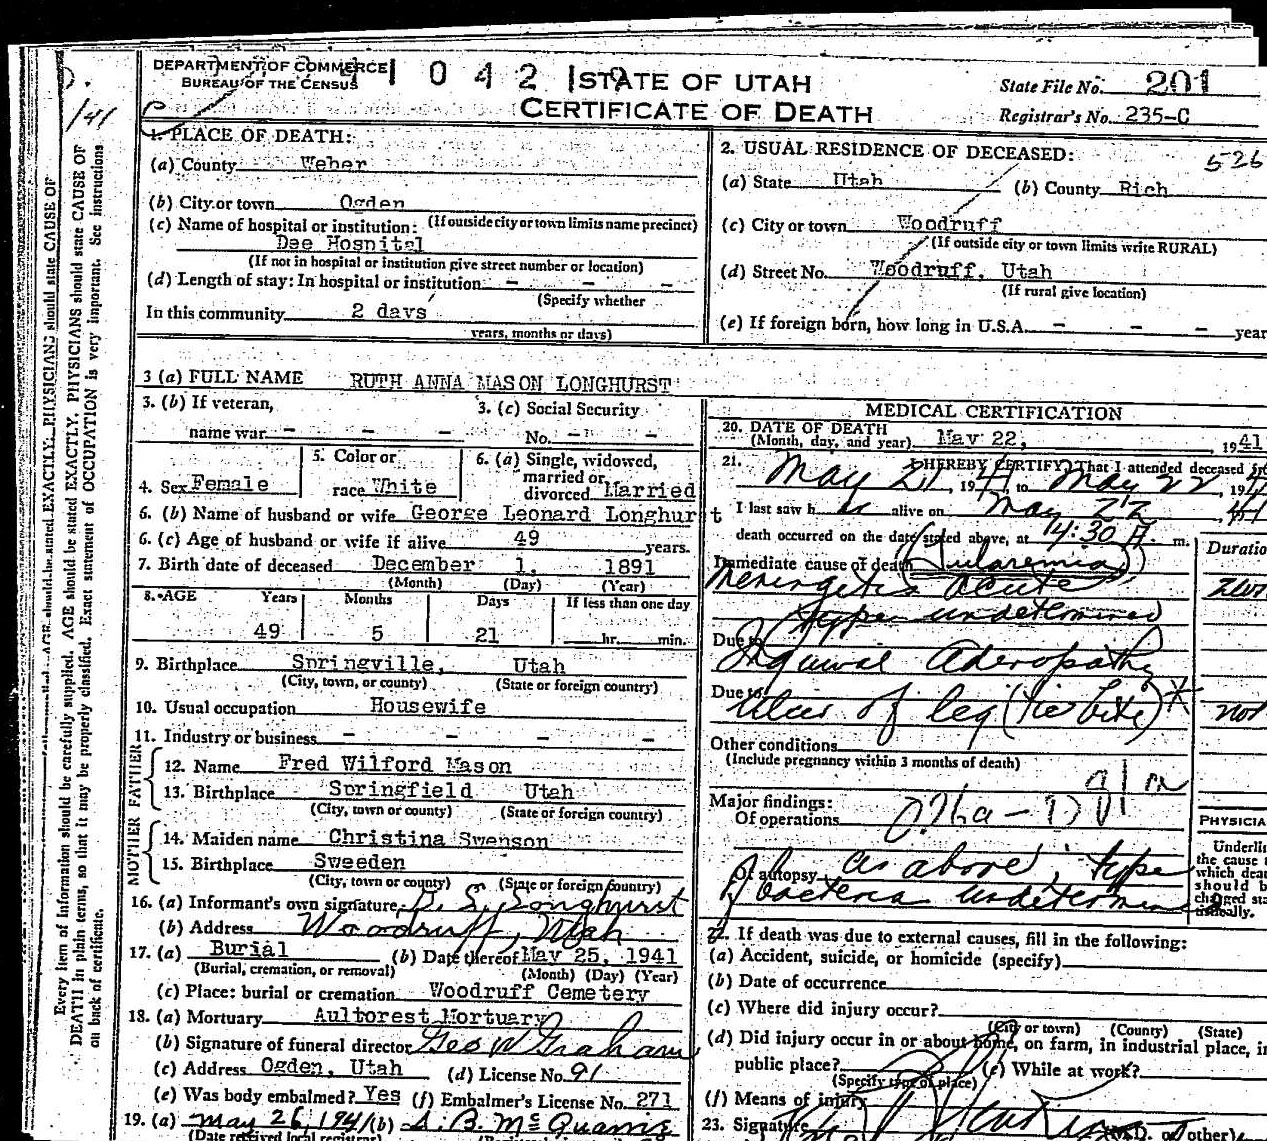 DEPARTMENT OF COMMERCE
BUREAU OF THE CENSUS
1 0 4 2
STATE OF UTAH
CERTIFICATE OF DEATH
State File No. 201
Registrar's No. 235-C
/41
526
1. PLACE OF DEATH:
(a) County Weber
(b) City or town Ogden
(If outside city or town limits name precinct)
(c) Name of hospital or institution:
Dee Hospital
(If not in hospital or institution give street number or location)
(d) Length of stay: In hospital or institution - - -
(Specify whether
In this community 2 days
years, months or days)
2. USUAL RESIDENCE OF DECEASED:
(a) State Utah (b) County Rich
(c) City or town Woodruff
(If outside city or town limits write RURAL)
(d) Street No. Woodruff, Utah
(If rural give location)
(e) If foreign born, how long in U.S.A. - - - year
3 (a) FULL NAME RUTH ANNA MASON LONGHURST
3. (b) If veteran,
name war - - -
3. (c) Social Security
No. - - -
4. Sex Female
5. Color or
race White
6. (a) Single, widowed,
married or
divorced Married
6. (b) Name of husband or wife George Leonard Longhurt
6. (c) Age of husband or wife if alive 49 years.
7. Birth date of deceased December 1, 1891
(Month) (Day) (Year)
8. AGE Years Months Days If less than one day
49 5 21 hr. min.
9. Birthplace Springville, Utah
(City, town, or county) (State or foreign country)
10. Usual occupation Housewife
11. Industry or business - - - -
FATHER
12. Name Fred Wilford Mason
13. Birthplace Springfield Utah
(City, town or county) (State or foreign country)
MOTHER
14. Maiden name Christina Swenson
15. Birthplace Sweeden
(City, town or county) (State or foreign country)
16. (a) Informant's own signature Longhurst
(b) Address Woodruff, Utah
17. (a) Burial (b) Date thereof May 25, 1941
(Burial, cremation, or removal) (Month) (Day) (Year)
(c) Place: burial or cremation Woodruff Cemetery
18. (a) Mortuary Aultorest Mortuary
(b) Signature of funeral director Geo W Graham
(c) Address Ogden, Utah (d) License No. 91
(e) Was body embalmed? Yes (f) Embalmer's License No. 271
19. (a) May 26, 1941 (b)
(Date received local registrar)
MEDICAL CERTIFICATION
20. DATE OF DEATH
(Month, day, and year) May 22, 1941
21. I HEREBY CERTIFY, That I attended deceased fro
May 21, 1941 to May 22, 194
I last saw h alive on May 22, 41
death occurred on the date stated above, at 4:30 A. m.
Duratio
Immediate cause of death (Tularemia)
Meningetis acute
type undetermined
Due to
Inguinal Adenopathy
Due to
Ulcer of leg (tic bite)*
not
Other conditions
(Include pregnancy within 3 months of death)
Major findings:
Of operations
PHYSICIA
Underli
the cause t
which deat
should b
charged sta
tistically.
Of autopsy as above, type
of bacteria undetermined
22. If death was due to external causes, fill in the following:
(a) Accident, suicide, or homicide (specify)
(b) Date of occurrence
(c) Where did injury occur?
(City or town) (County) (State)
(d) Did injury occur in or about home, on farm, in industrial place, in
public place? (e) While at work?
(Specify type of place)
(f) Means of injury
23. Signature (M.D. or other)
Every item of information should be carefully supplied. AGE should be stated EXACTLY. PHYSICIANS should state CAUSE OF
DEATH in plain terms, so that it may be properly classified. Exact statement of OCCUPATION is very important. See instructions
on back of certificate.